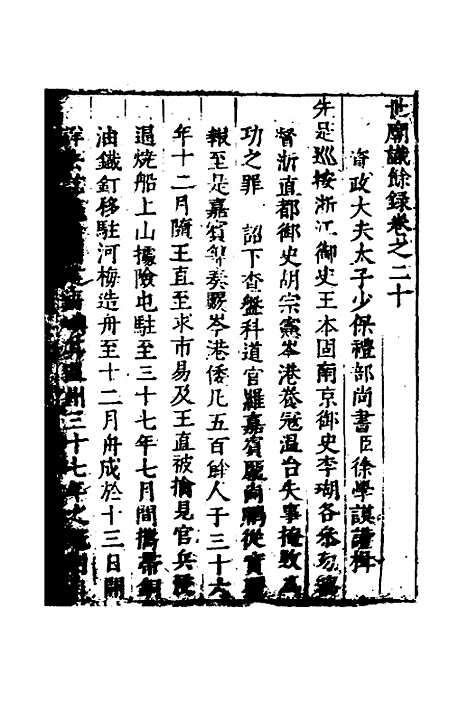 世廟識餘錄卷之二十
資政大夫太子少保禮部尚書臣徐學謨謹輯
先是巡按浙江御史王本固南京御史李瑚各參
督浙直都御史胡宗憲岑港養寇溫台失事掩敗為
功之罪 詔下查盤科道官羅嘉賓龐尚鵬從實
報至是嘉賓等奏夥岑港倭凡五百餘人于三十六
年十二月隨王直至求市易及王直被擒見官兵侵
逼燒船上山據險屯駐至三十七年七月間攜帶桐
油鐵釘移駐河梅造舟至十二月舟成於十三日開
溫州三十七年之